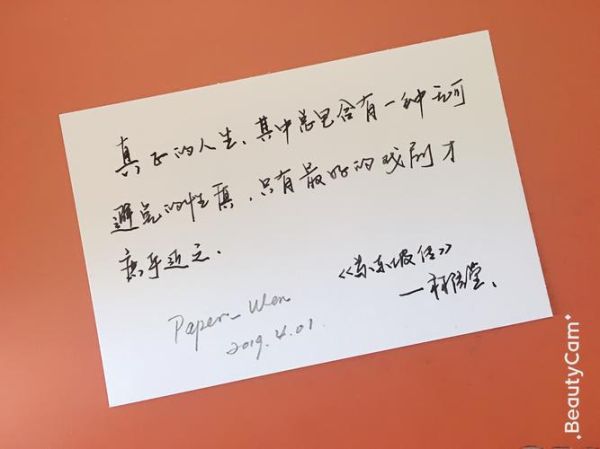 真正的人生、其中总包含有一种无可
避免的性质，只有最好的戏剧才
庶乎近之.
《苏东坡传》
—林语堂、
Paper_Wen
2019.4.01
BeautyCam